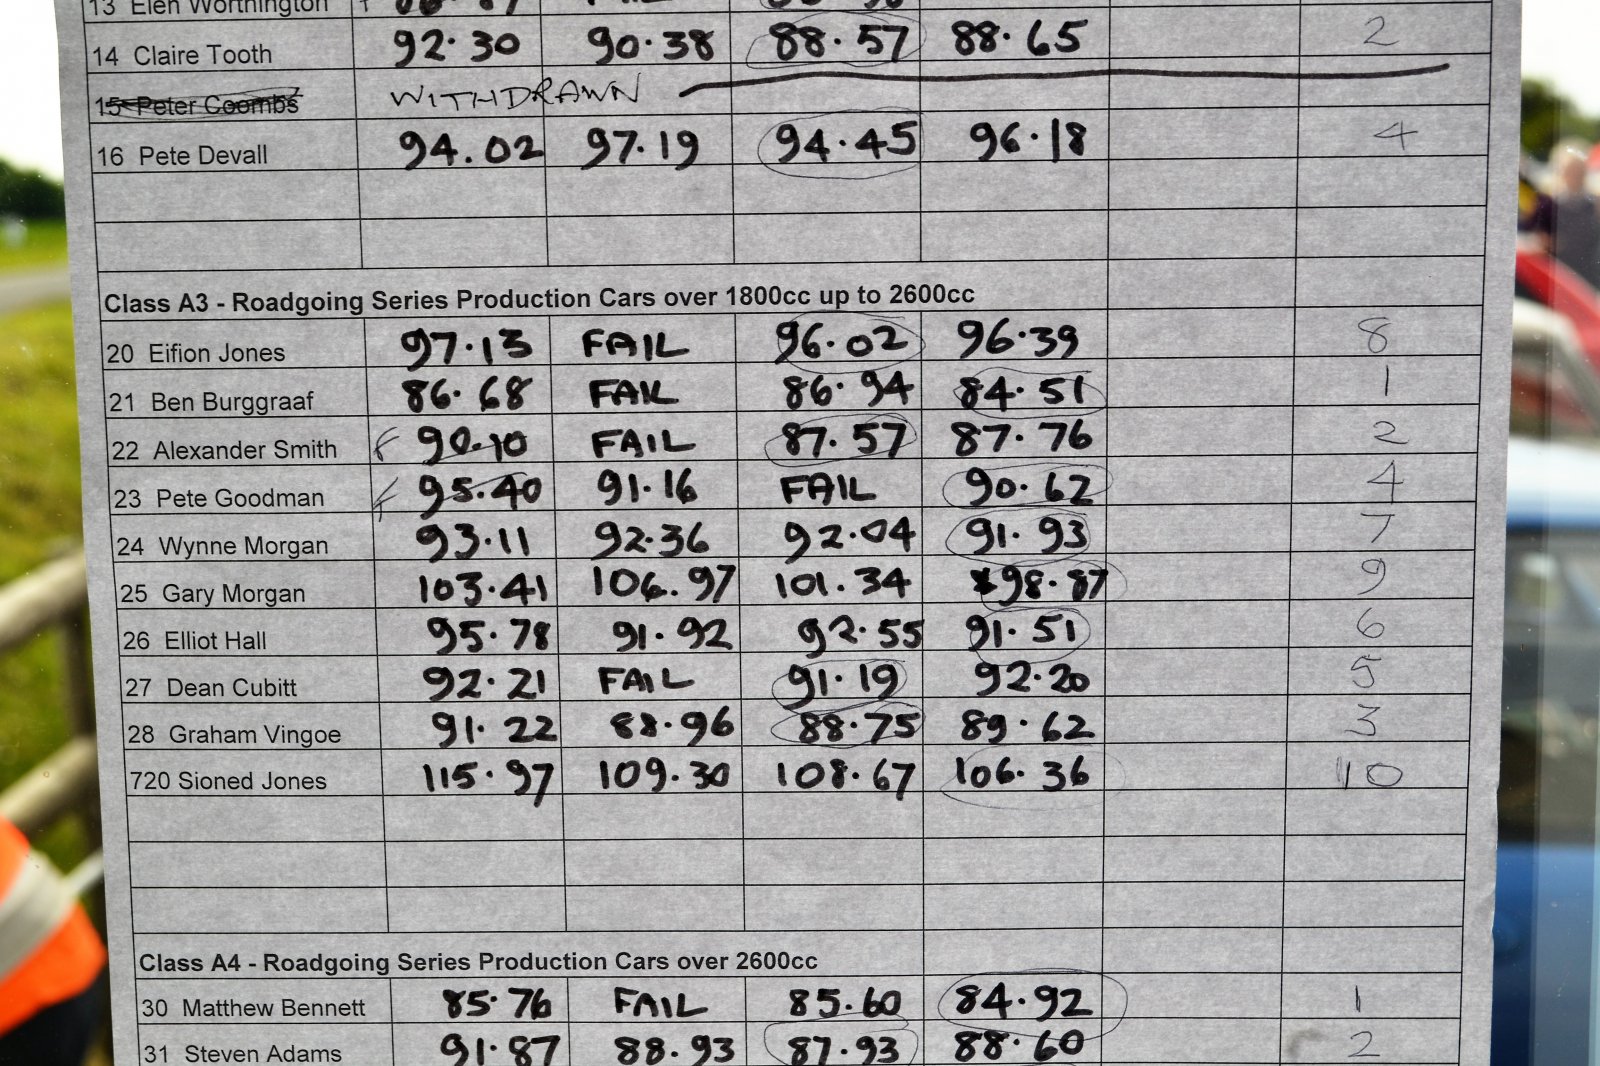 13 Elen Worthington
14 Claire Tooth 92.30 90.38 88.57 88.65 2
15 Peter Coombs WITHDRAWN
16 Pete Devall 94.02 97.19 94.45 96.18 4
Class A3 - Roadgoing Series Production Cars over 1800cc up to 2600cc
20 Eifion Jones 97.13 FAIL 96.02 96.39 8
21 Ben Burggraaf 86.68 FAIL 86.94 84.51 1
22 Alexander Smith F 90.10 FAIL 87.57 87.76 2
23 Pete Goodman F 95.40 91.16 FAIL 90.62 4
24 Wynne Morgan 93.11 92.36 92.04 91.93 7
25 Gary Morgan 103.41 106.97 101.34 98.87 9
26 Elliot Hall 95.78 91.92 92.55 91.51 6
27 Dean Cubitt 92.21 FAIL 91.19 92.20 5
28 Graham Vingoe 91.22 88.96 88.75 89.62 3
720 Sioned Jones 115.97 109.30 108.67 106.36 10
Class A4 - Roadgoing Series Production Cars over 2600cc
30 Matthew Bennett 85.76 FAIL 85.60 84.92 1
31 Steven Adams 91.87 88.93 87.93 88.60 2